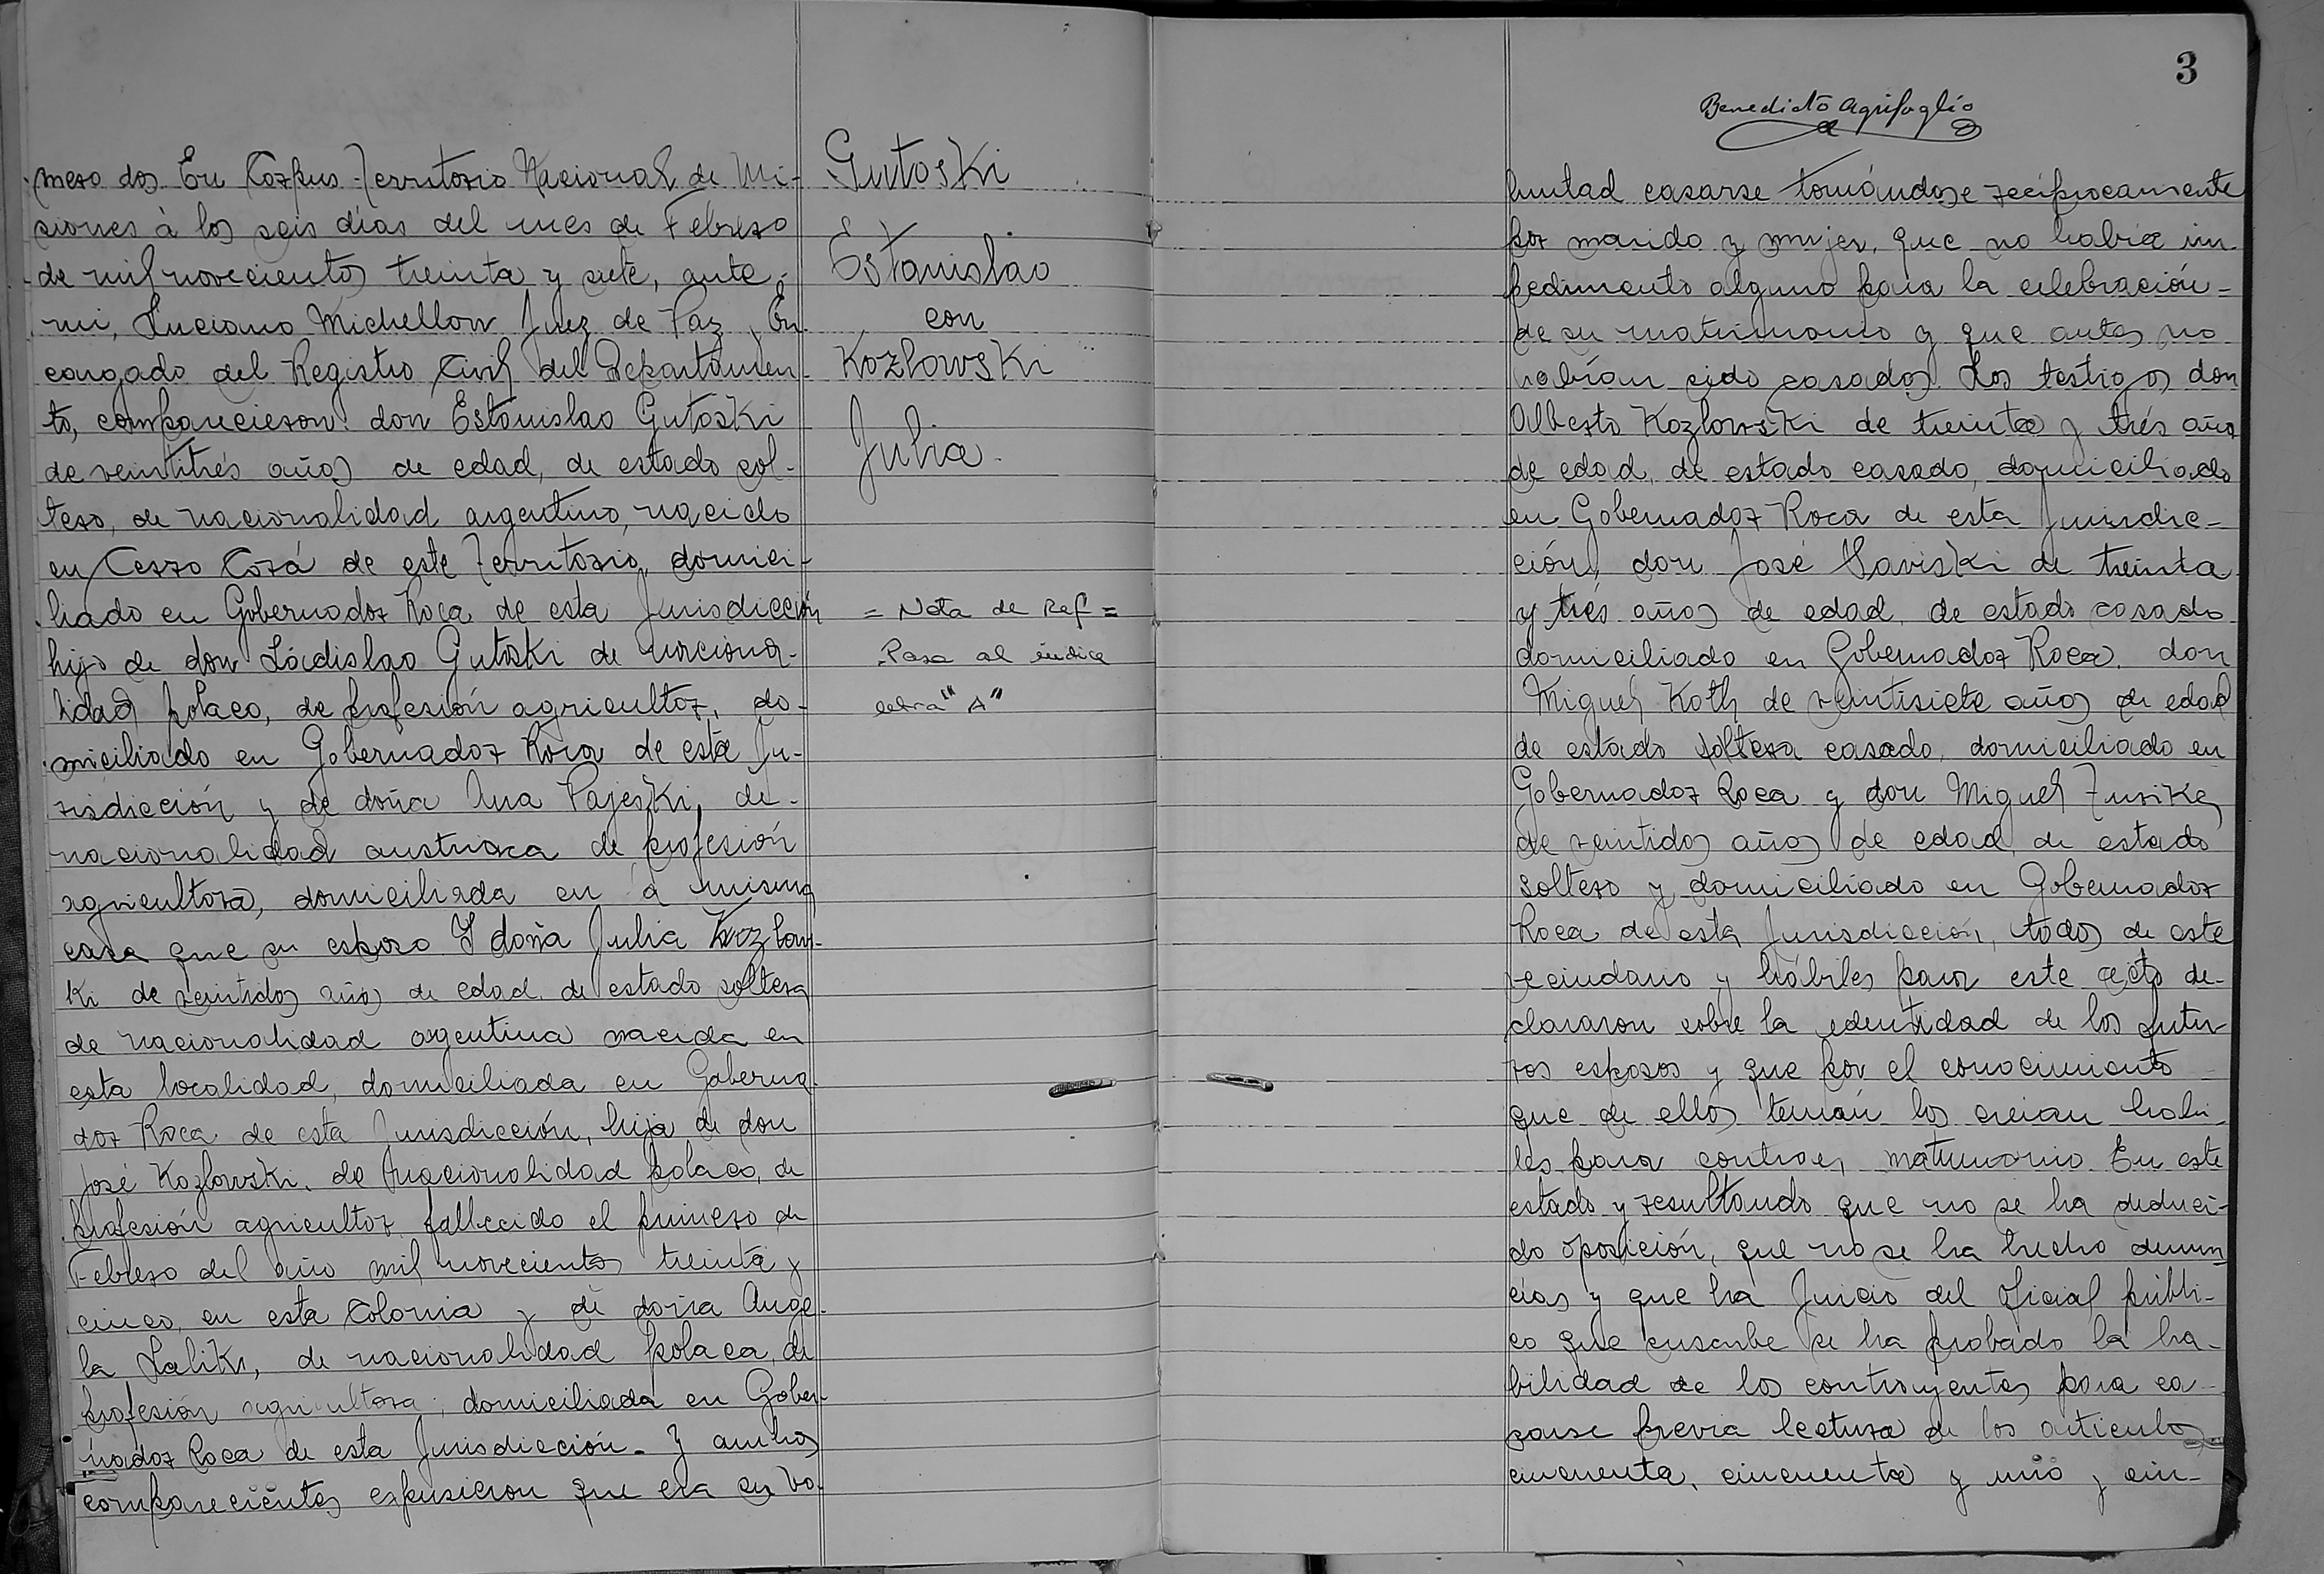 mero dos. En Corpus-Territorio Nacional de Mi-
siones à los seis días del mes de Febrero
de mil novecientos treinta y siete, ante
mi, Luciano Michellon Juez de Paz, En-
cargado del Registro Civil del Departamen-
to, comparecieron: don Estanislao Gutoski
de veintitrés años de edad, de estado sol-
tero, de nacionalidad argentino, nacido
en Cerro Corá de este Territorio, domici-
liado en Gobernador Roca de esta Jurisdicción
hijo de don Ládislao Gutoski de naciona-
lidad polaco, de profesión agricultor, do-
miciliado en Gobernador Roca de esta Ju-
risdicción y de doña Ana Pajeski, de
nacionalidad austriaca de profesión
agricultora, domiciliada en la misma
casa que su esposo Y doña Julia Kozlows-
ki de veintidos años de edad, de estado soltera
de nacionalidad argentina nacida en
esta localidad, domiciliada en Goberna-
dor Roca de esta Jurisdicción, hija de don
José Kozlowski, de nacionalidad polaco, de
profesión agricultor fallecido el primero de
Febrero del año mil novecientos treinta y
cinco, en esta Colonia y de doña Ange-
la Laliki, de nacionalidad polaca, de
profesión agricultora, domiciliada en Gober-
nador Roca de esta Jurisdicción. Y ambos
comparecientes expusieron que era su vo-
Gutoski
Estanislao
con
Kozlowski
Julia.
= Nota de Ref =
Pasa al indice
letra "A"
3
Benedicto Agrifoglio
luntad casarse tomándose recíprocamente
por marido y mujer, que no había im-
pedimento alguno para la celebración
de su matrimonio y que antes no
habían sido casados. Los testigos don
Alberto Kozlowski de treinta y trés años
de edad, de estado casado, domiciliado
en Gobernador Roca de esta Jurisdic-
ción, don José Saviski de treinta
y trés años de edad, de estado casado
domiciliado en Gobernador Roca. don
Miguel Koth de veintisiete años de edad
de estado soltera casado, domiciliado en
Gobernador Roca y don Miguel
de veintidos años de edad, de estado
soltero y domiciliado en Gobernador
Roca de esta Jurisdicción, todos de este
vecindario y hábiles para este acto de-
clararon sobre la identidad de los futu-
ros esposos y que por el conocimiento
que de ellos tenían los creian habi-
les para contraer matrimonio. En este
estado y resultando que no se ha deduci-
do oposición, que no se ha hecho denun
cias y que ha Juicio del oficial públi-
co que suscribe se ha probado la ha-
bilidad de los contrayentes para ca-
sarse previa lectura de los articulos
cincuenta, cincuenta y uno y cin-